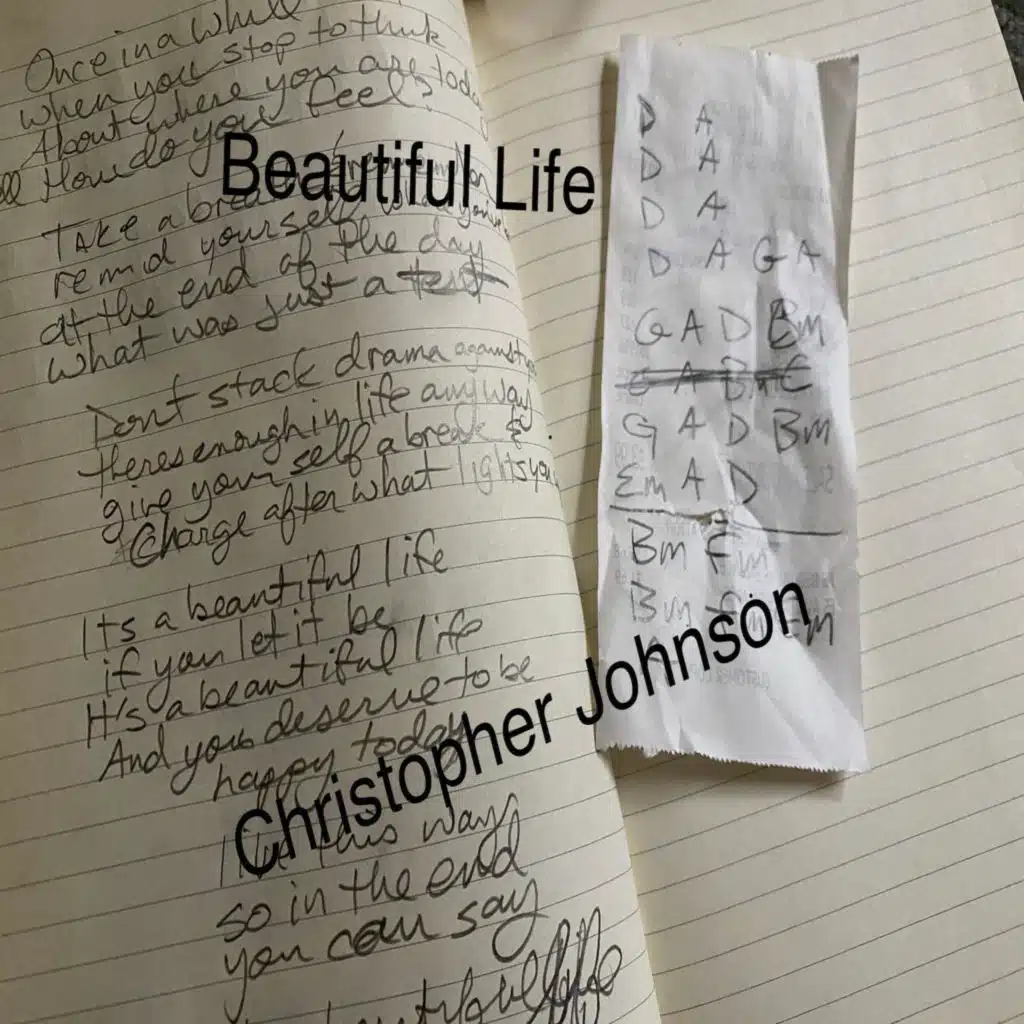 Once in a while
when you stop to think
About where you are today
How do you feel?
Beautiful Life
Take a break
remind yourself
at the end of the day
what was just a test
Dont stack drama against
theres enough in life anyway
give your self a break &
Charge after what lights you
Its a beautiful life
if you let it be
It's a beautiful life
And you deserve to be
happy today
Christopher Johnson
this way
so in the end
you can say
beautiful life
D A
D A
D A
D A G A
G A D Bm
G A Bm C
G A D Bm
Em A D
Bm Em
Bm